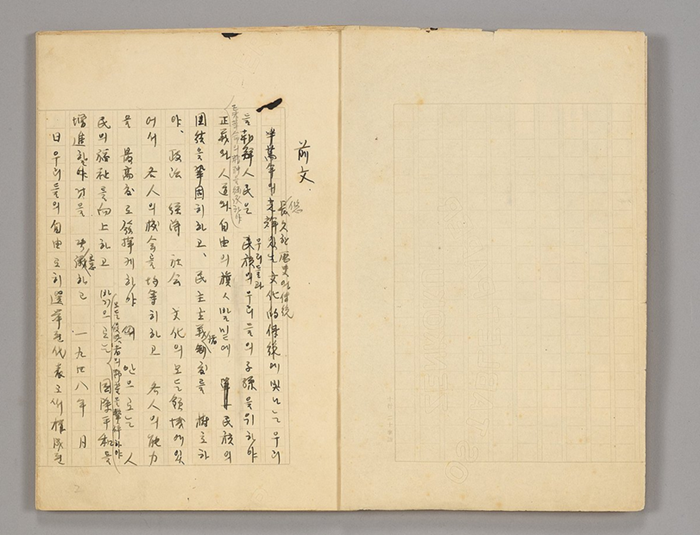 前文.
悠
長久한 歷史와 傳統
半萬年의 文化的 傳統에 빛나는 우리
들 朝鮮人民은 우리들과 우리들의 子孫을 위하야
正義와 人道와 自由의 旗人발밑에 民族의
団結을 鞏固히하고, 民主主義諸制度를 樹立하
야, 政治 経済 社会 文化의 모든 領域에있
어서 各人의 機会를 均等히하고 各人의 能力
을 最高度로 發揮케하야 써 안으로는 人
民의 福祉를 向上하고 밖으로는 國際平和를
모든 侵略者의
增進할 것을 하고 一九四八年 月
日 우리들의 自由로히 選擧한 代表로써 構成된